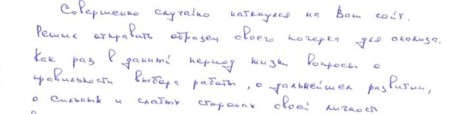 Совершенно случайно наткнулся на Ваш сайт.
Решил отправить образец своего почерка для анализа.
Как раз в данный период жизни вопросы о
правильности выбора работы, о дальнейшем развитии,
о сильных и слабых сторонах своей личности